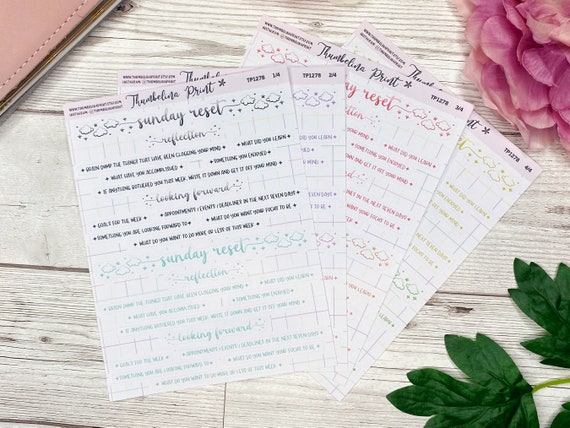 WWW.THUMBELINAPRINT.ETSY.COM
INSTAGRAM : @THUMBELINAPRINT
Thumbelina Print
TP1278 1/4
sunday reset
reflection
BRAIN DUMP THE THINGS THAT HAVE BEEN CLOGGING YOUR MIND
WHAT DID YOU LEARN
WHAT HAVE YOU ACCOMPLISHED
SOMETHING YOU ENJOYED
IF ANYTHING BOTHERED YOU THIS WEEK, WRITE IT DOWN AND GET IT OFF YOUR MIND
looking forward
GOALS FOR THE WEEK
APPOINTMENTS / EVENTS / DEADLINES IN THE NEXT SEVEN DAYS
SOMETHING YOU ARE LOOKING FORWARD TO
WHAT DO YOU WANT YOUR FOCUS TO BE
WHAT DO YOU WANT TO DO MORE OR LESS OF THIS WEEK
sunday reset
reflection
BRAIN DUMP THE THINGS THAT HAVE BEEN CLOGGING YOUR MIND
WHAT DID YOU LEARN
WHAT HAVE YOU ACCOMPLISHED
SOMETHING YOU ENJOYED
IF ANYTHING BOTHERED YOU THIS WEEK, WRITE IT DOWN AND GET IT OFF YOUR MIND
looking forward
GOALS FOR THE WEEK
APPOINTMENTS / EVENTS / DEADLINES IN THE NEXT SEVEN DAYS
SOMETHING YOU ARE LOOKING FORWARD TO
WHAT DO YOU WANT YOUR FOCUS TO BE
WHAT DO YOU WANT TO DO MORE OR LESS OF THIS WEEK
TP1278 2/4
WHAT DID YOU LEARN
Thumbelina Print
TP1278 3/4
reset
WHAT DID YOU LEARN
SOMETHING YOU ENJOYED
WRITE IT DOWN AND GET IT OFF YOUR MIND
IN THE NEXT SEVEN DAYS
WHAT DO YOU WANT YOUR FOCUS TO BE
TP1278 4/4